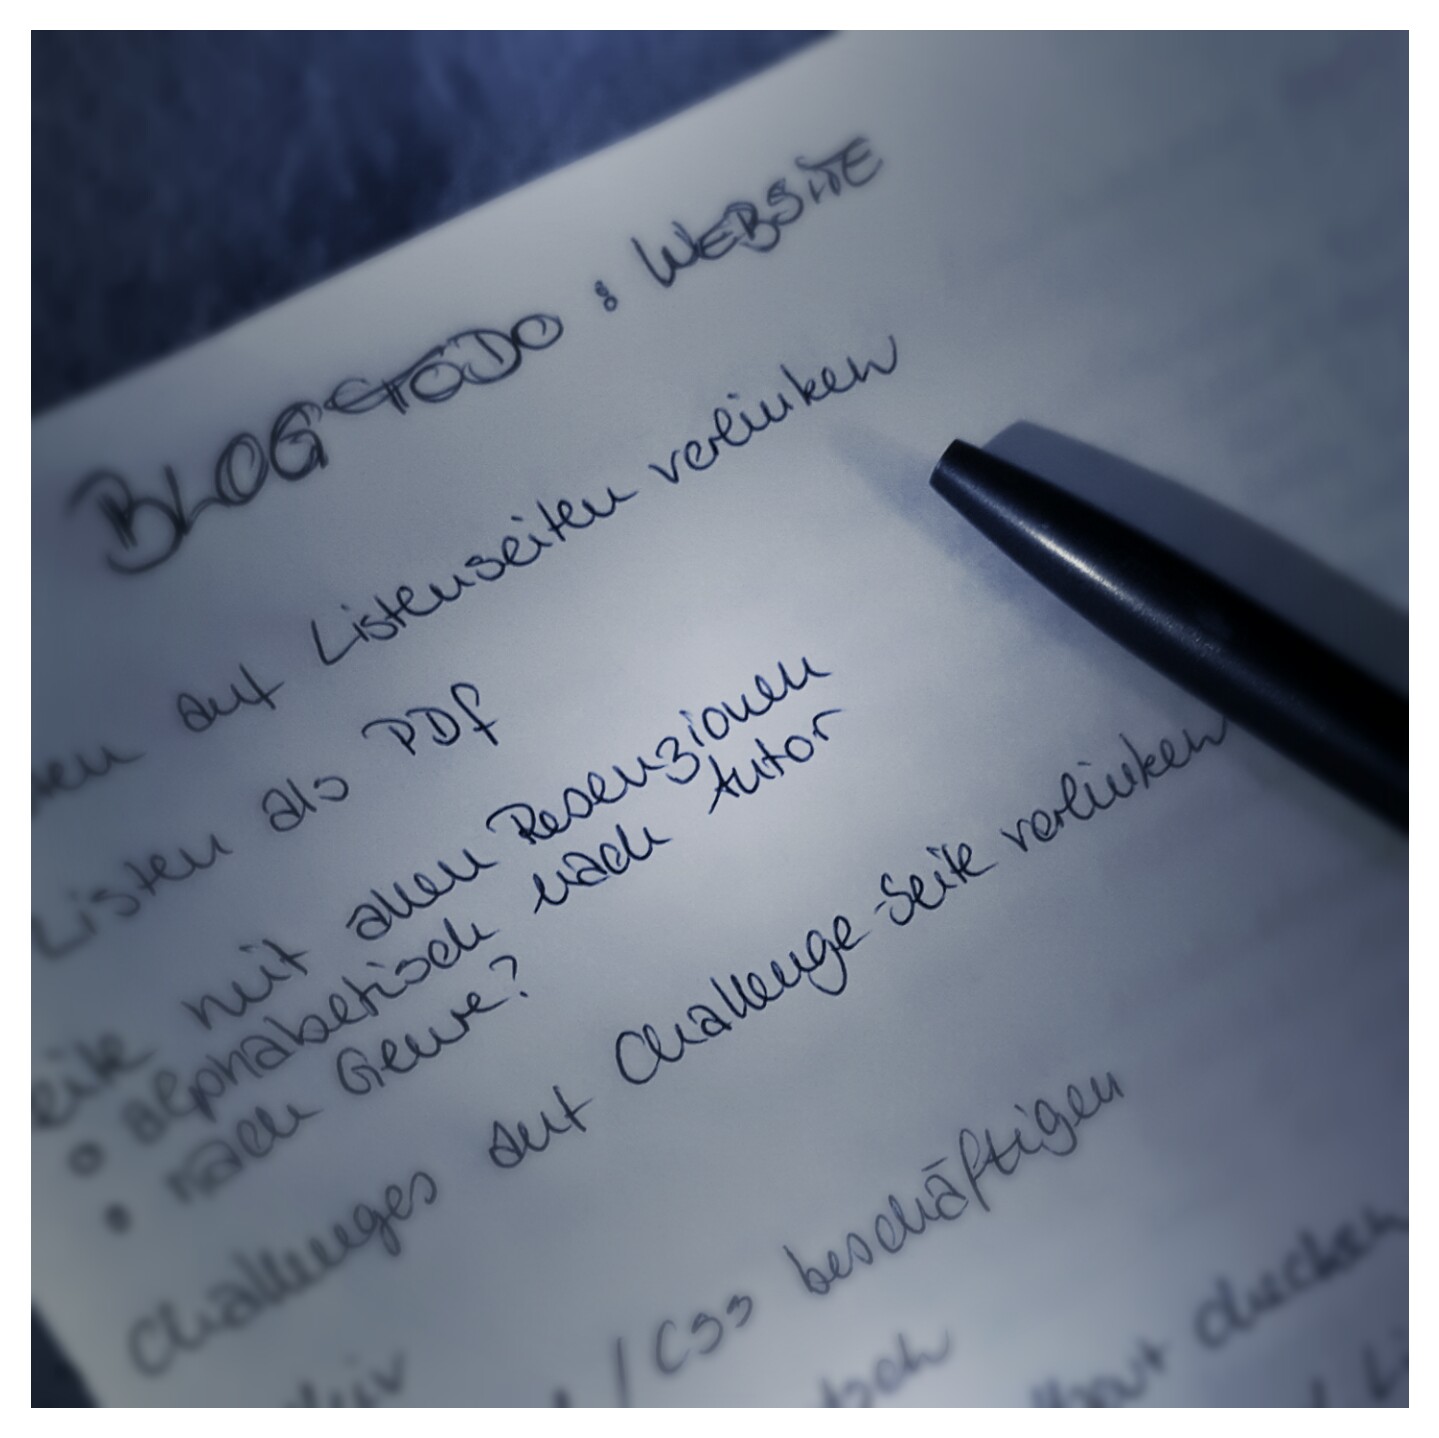 BLOG TODO : WEBSITE
auf Listenseiten verlinken
Listen als PDF
mit allen Rezensionen
• alphabetisch nach Autor
• nach Genre?
Challenges auf Challenge-Seite verlinken
/CSS beschäftigen
checken